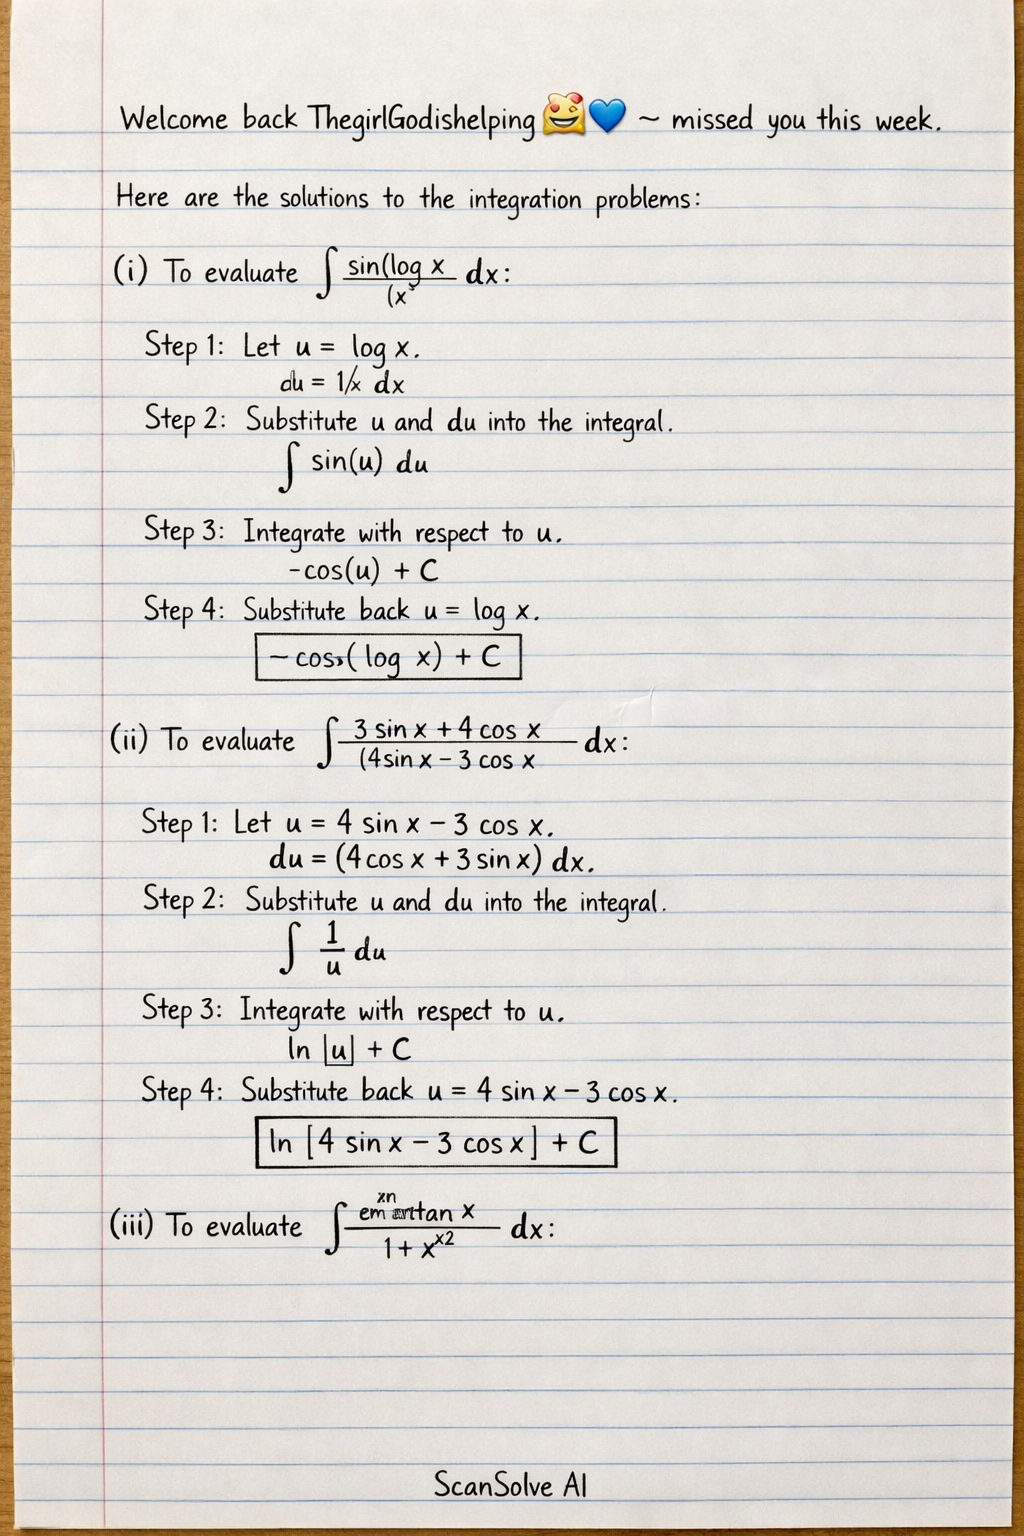 Welcome back ThegirlGodishelping 🥰💙 ~ missed you this week.
Here are the solutions to the integration problems:
(i) To evaluate ∫ sin(log x / (x dx:
Step 1: Let u = log x.
du = 1/x dx
Step 2: Substitute u and du into the integral.
∫ sin(u) du
Step 3: Integrate with respect to u.
-cos(u) + C
Step 4: Substitute back u = log x.
- cos( log x) + C
(ii) To evaluate ∫ 3 sin x + 4 cos x / (4 sin x - 3 cos x dx:
Step 1: Let u = 4 sin x - 3 cos x.
du = (4 cos x + 3 sin x) dx.
Step 2: Substitute u and du into the integral.
∫ 1/u du
Step 3: Integrate with respect to u.
ln |u| + C
Step 4: Substitute back u = 4 sin x - 3 cos x.
ln [4 sin x - 3 cos x] + C
(iii) To evaluate ∫ tan x / 1 + x^x2 dx:
ScanSolve AI